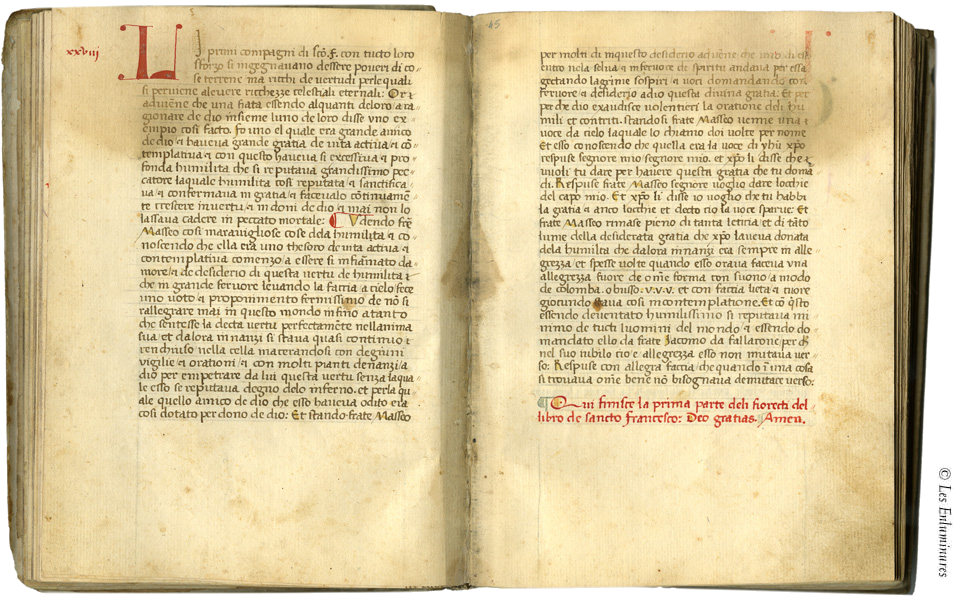 xxviij
LI primi compagni di sco. F. con tucto loro
sforzo si ingegnavano dessere poveri di co-
se terrene ma ricchi de vertudi per le quali
si perviene alevere ricchezze celestiali eternali: Or
advenne che una fiata essendo alquanti deloro a ra-
gionare de dio insieme luno de loro disse uno ex-
empio cosi facto. Fo uno el quale era grande amico
de dio et haveva grande gratia de vita activa et co-
templativa et con questo haveva si excessiva et pro-
fonda humilita che si reputava grandissimo pec-
catore laquale humilita cosi reputata et sanctifica-
va et confermava in gratia et facevalo cotinuame-
te crescere in vertu et in doni de dio et mai non lo
lassava cadere in peccato mortale: Vdendo fre
Masseo cosi maravigliose cose dela humilita et co-
noscendo che ella era uno thesoro de vita activa et
contemplativa comenzo a essere si infiamato da-
more et de desiderio di questa vertu de humilita
che in grande fervore levando la faccia a cielo fece
uno voto et proponimento fermissimo de no si
rallegrare mai in questo mondo infino atanto
che sentesse la decta vertu perfectamete nellanima
sua et dalora innanzi si stava quasi continuo
renchiuso nella cella macerandosi con degiuni
vigilie et orationi et con molti pianti denanzi a
dio per empetrare da lui questa vertu senza laqua-
le esso se reputava degno delo inferno. et perla qu-
ale quello amico de dio che esso haveva odito era
cosi dotato per dono de dio: Et stando frate Masseo
45
per molti di in questo desiderio advene che uno di es-
entro nela selva et in fervore di spiritu andava per essa
gectando lagrime sospiri et voci domandando con
fervore et desiderio adio questa divina gratia. Et per
per che dio exaudisce volentieri la oratione deli hu-
mili et contriti. stando si frate Masseo venne una
voce da cielo laquale lo chiamo doi volte per nome
Et esso conoscendo che quella era la voce di yhu xpo
respuse segnore mio segnore mio. et xpo li disse che
vuoli tu dare per havere questa gratia che tu doma-
di. Respuse frate Masseo segnore voglio dare locchie
del capo mio. Et xpo li disse io voglio che tu habbi
la gratia et anco locchie et decto cio la voce sparue: Et
frate Masseo rimase pieno di tanta leticia et di tato
lume della desiderata gratia che xpo laveva donata
dela humilta che dalora innanzi era sempre in alle-
grezza et spesse volte quando esso orava faceva una
allegrezza fuore de ome forma con suono a modo
de colomba. obusso. v.v.v. et con faccia lieta et cuore
giocundo stava cosi in contemplatione. Et co qsto
essendo deventato humilissimo si reputava mi-
nimo de tucti luomini del mondo et essendo do-
mandato ello da frate Jacomo da fallarone per ch
nel suo iubilo cio e allegrezza esso non mutava ver-
so: Respuse con allegra faccia che quando i una cosa
si trovava ome bene no bisognava de mutare verso:
Qui finisce la prima parte deli fiorecti del
libro de sancto Francesco: Deo gratias. Amen.
© Les Enluminures